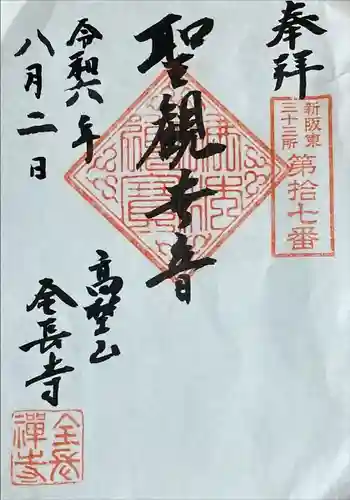 奉拝
新阪東
三十三所
第拾七番
聖観世音
令和六年
八月二日
高埜山
全長寺
佛法僧寳
全長
禅寺